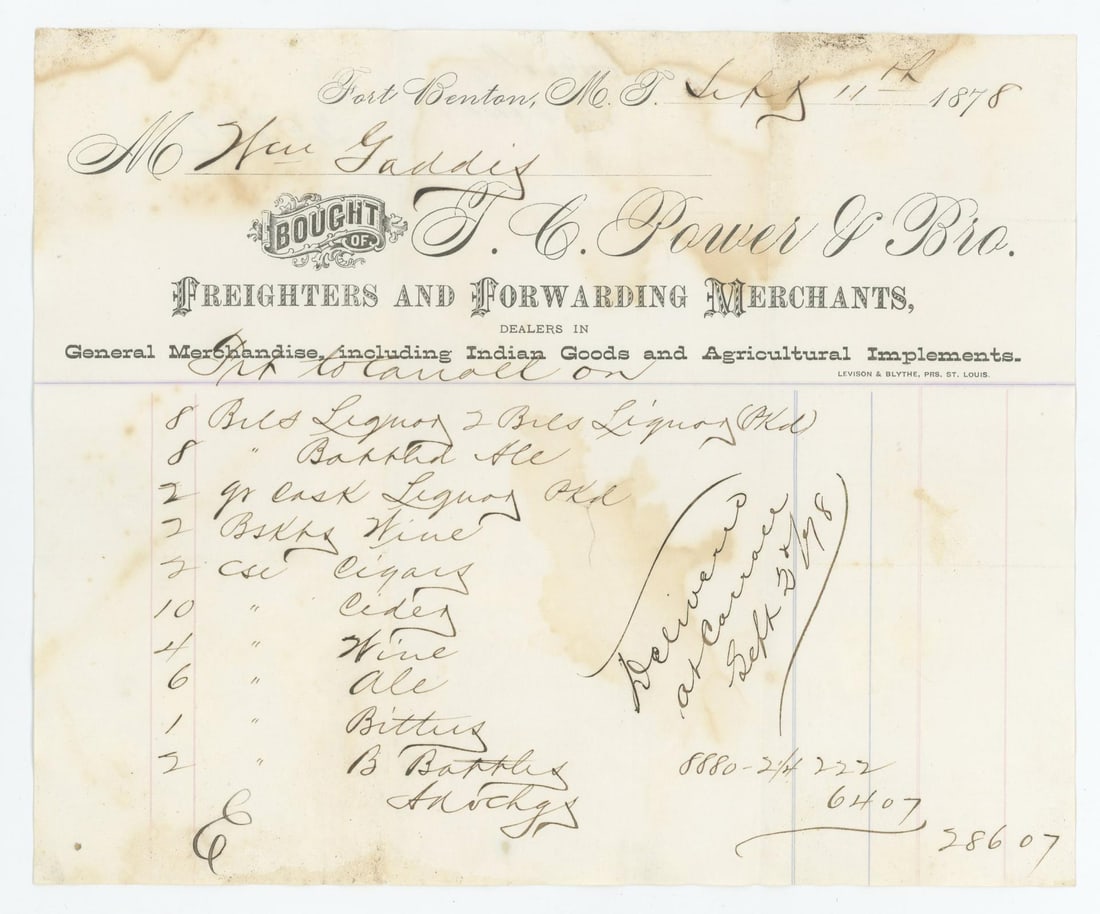 Fort Benton, M. T. Sept 11th 1878
M Wm Gaddis
BOUGHT OF T. C. Power & Bro.
FREIGHTERS AND FORWARDING MERCHANTS,
DEALERS IN
General Merchandise, including Indian Goods and Agricultural Implements.
LEVISON & BLYTHE, PRS. ST. LOUIS.
Frt to Carroll on
8 Brls Liquor 2 Brls Liquor (Pkd)
8 " Bottled Ale
2 qr Cask Liquor Pkd
2 Bskts Wine
2 cse Cigars
10 " Cider
4 " Wine
6 " Ale
1 " Bitters
2 " B Bottles 8880 - 2 1/2 222
Adv chgs 64 07
286 07
Delivered
at Carroll
Sept /78
E